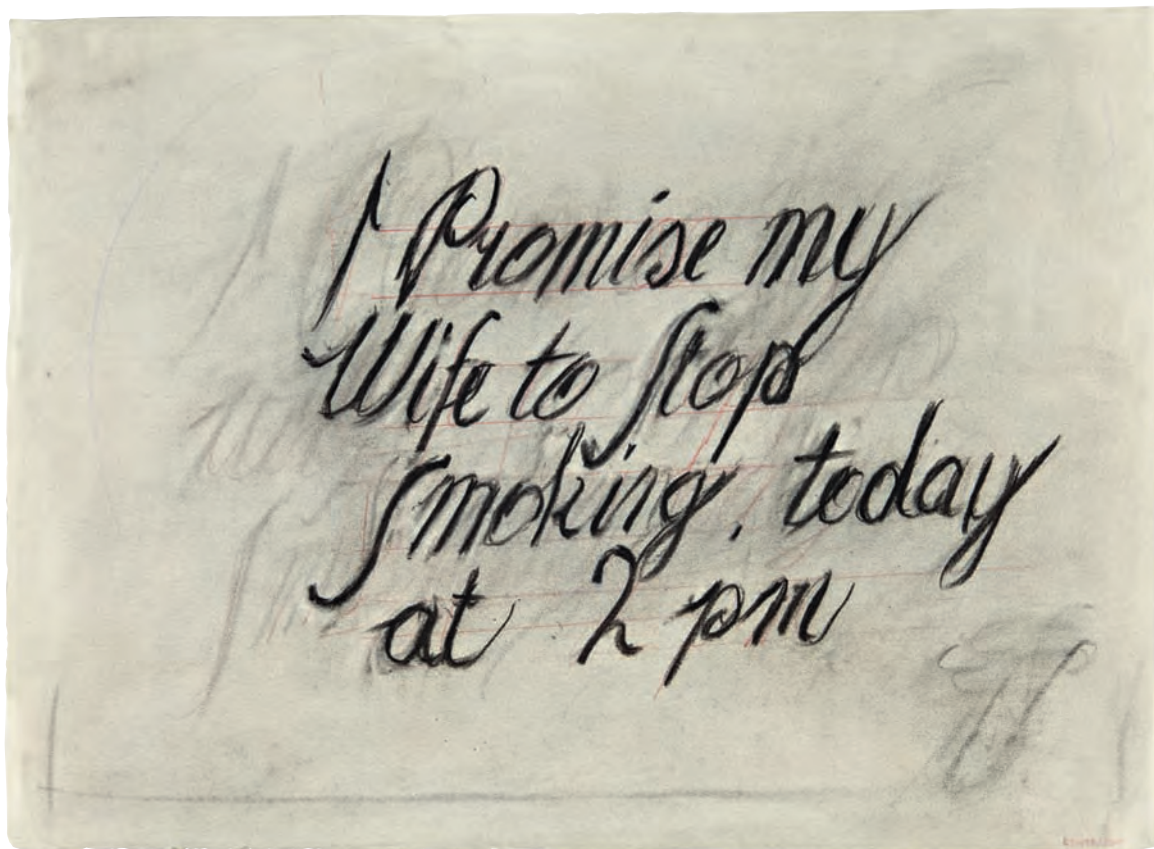 I Promise my
Wife to Stop
smoking, today
at 2 pm